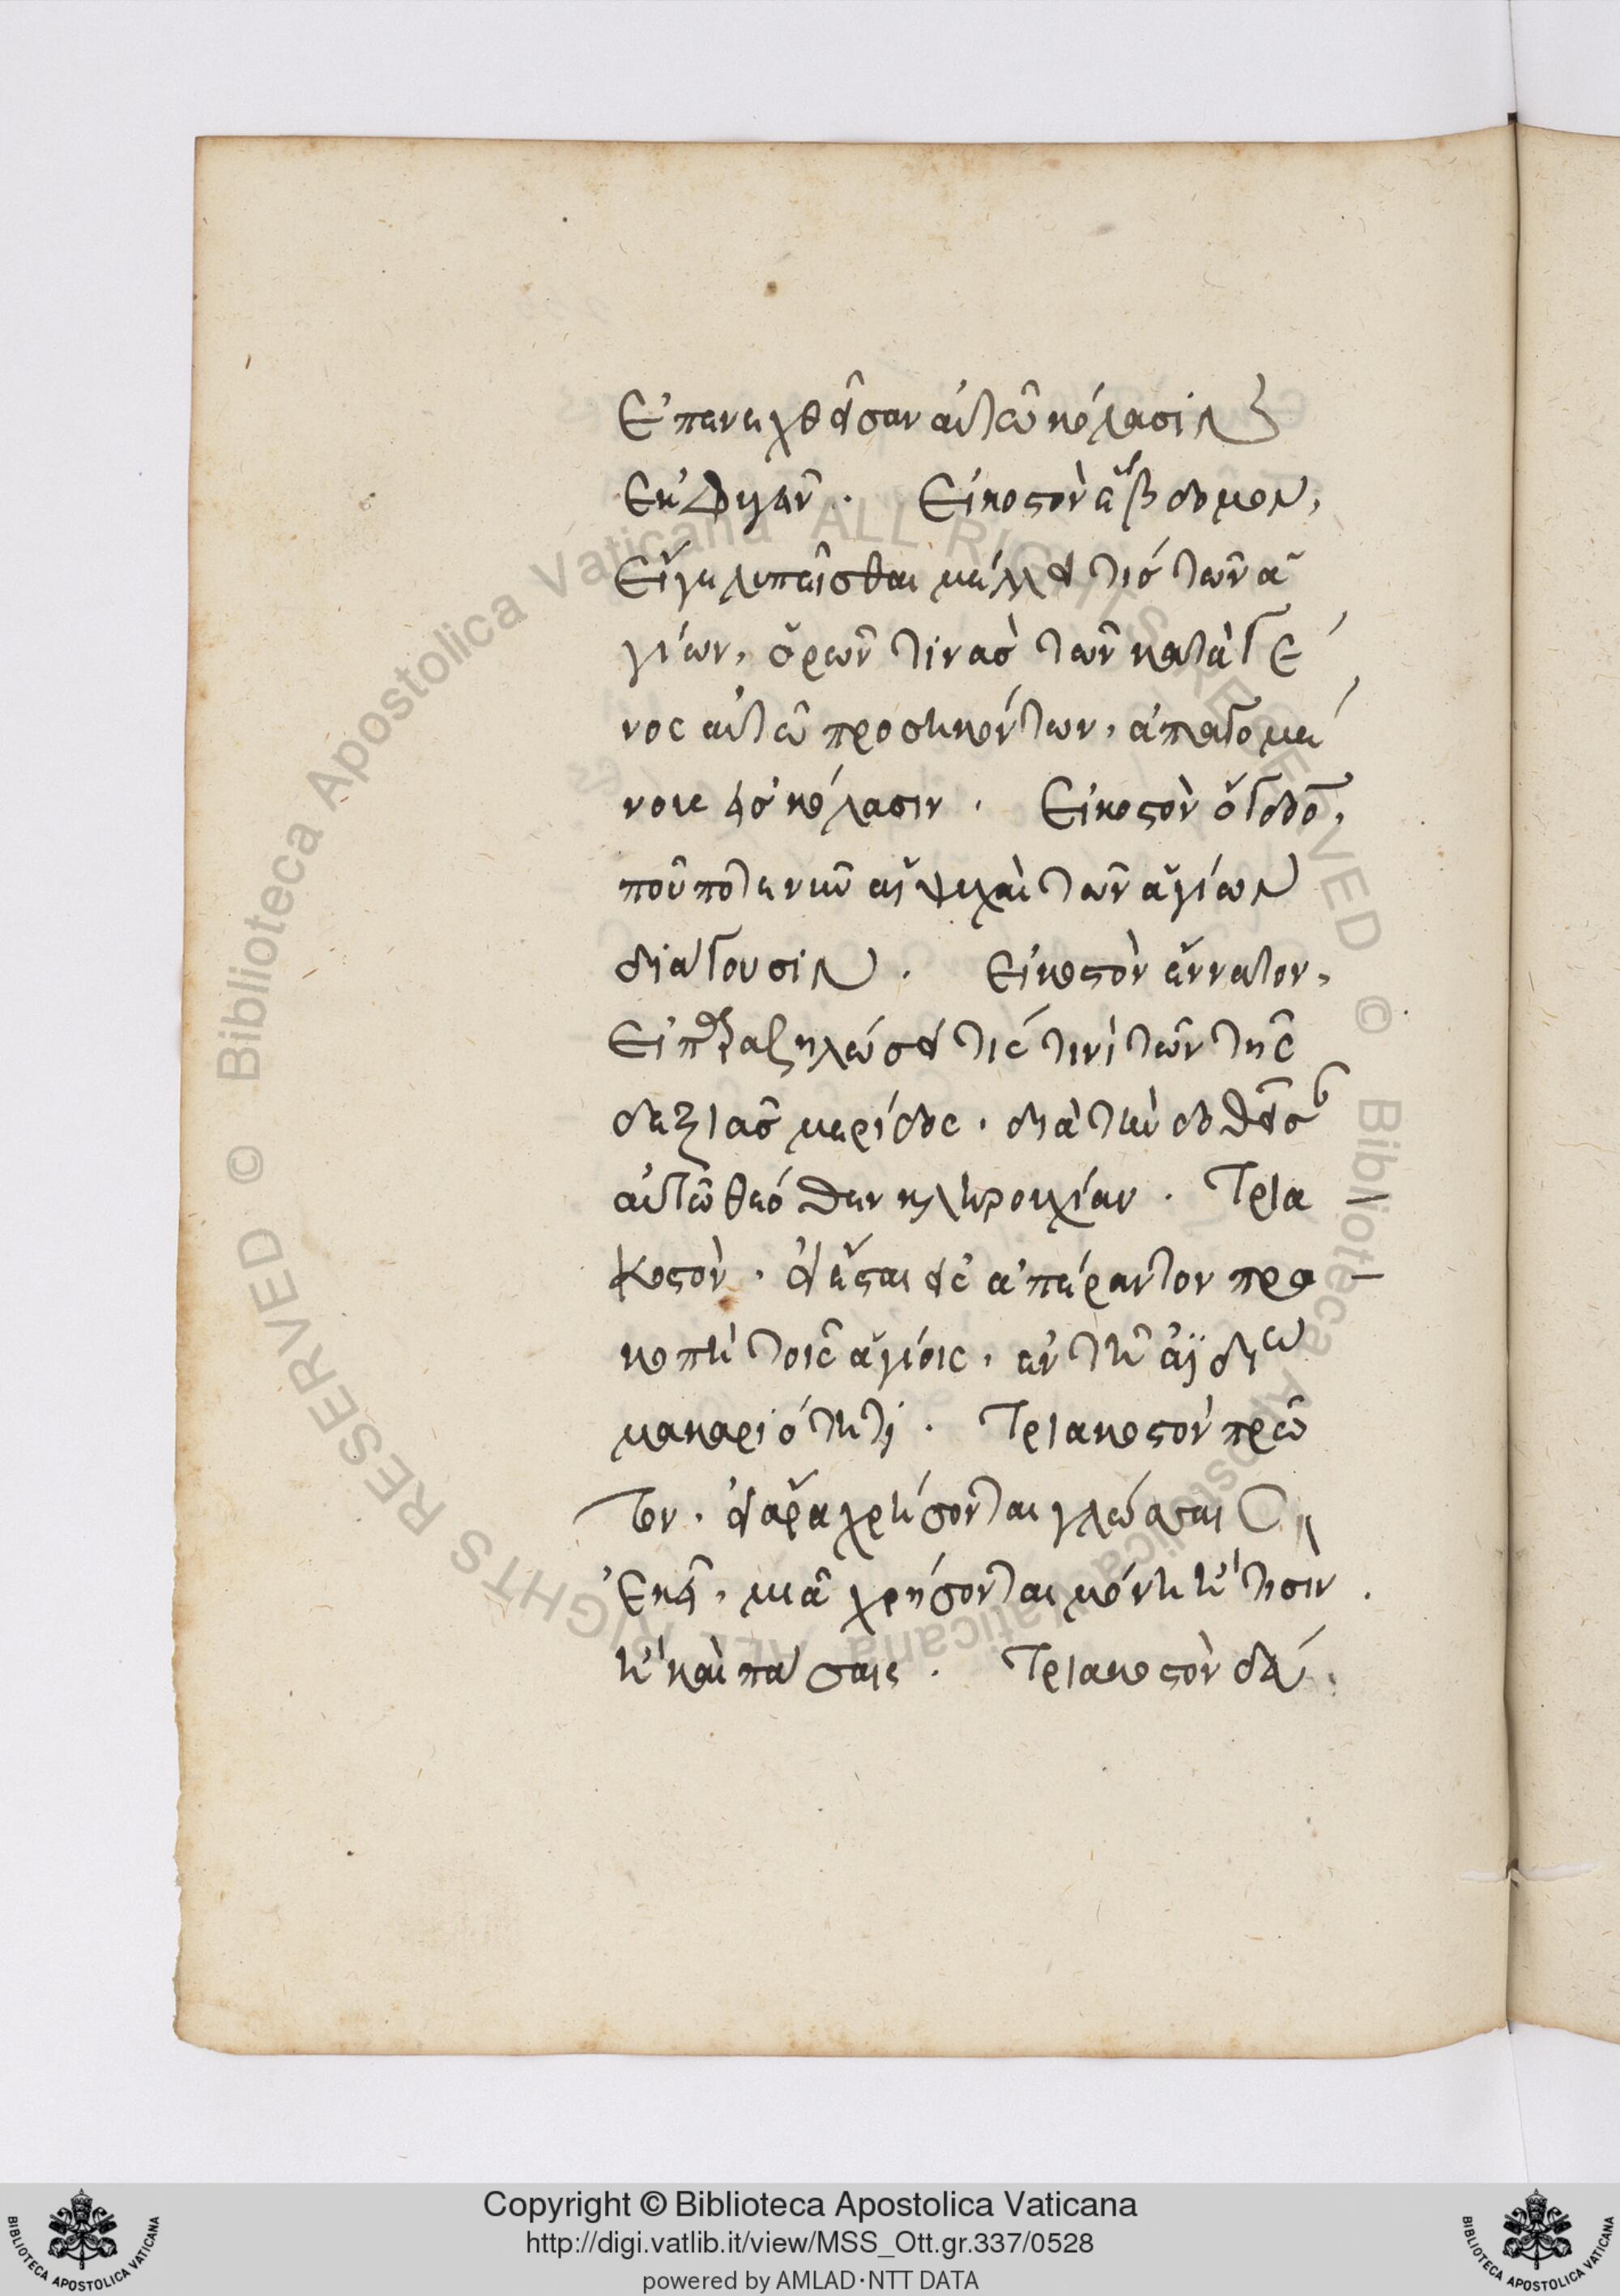 Ἐπενεχθεῖσαν αὐτῶ κόλασιν
ἐκφυγεῖν. Εἰκοστὸν ἕβδομον,
Εἴγε λυπεῖσθαι μέλλει τισ τῶν ἁ
γίων, ὁρῶν τινασ τῶν κατὰ γέ
νος αὐτῶ προσηκόντων, ἀπαγομέ
νους εἰσ κόλασιν. Εἰκοστὸν ὄγδοον,
ποῦ ποτε νῦν αἱ ψυχαὶ τῶν ἁγίων
διάγουσιν. Εἰκοστὸν ἔννατον,
Εἰ παραζηλώσει τίς τινὶ τῶν τῆς
δεξιᾶσ μερίδος, διὰ τὴν δοθεῖσαν
αὐτῶ θεόθεν κληρουχίαν. Τρια
κοστὸν, εἰ ἔσται εἰς ἀπέραντον προ
κοπὴ τοῖς ἁγίοις, ἐν τῆ ἀϊδίω
μακαριότητι. Τριακοστὸν πρῶ
τον, εἰ ἄρα χρήσονται γλώσσαις
ἐκεῖ, μιᾶ χρήσονται μόνη ἤ τισιν.
ἢ καὶ πάσαις. Τριακοστὸν δεύ.
Copyright © Biblioteca Apostolica Vaticana
http://digi.vatlib.it/view/MSS_Ott.gr.337/0528
powered by AMLAD·NTT DATA
BIBLIOTECA APOSTOLICA VATICANA
BIBLIOTECA APOSTOLICA VATICANA
© Biblioteca Apostolica Vaticana ALL RIGHTS RESERVED © Biblioteca Apostolica Vaticana ALL RIGHTS RESERVED